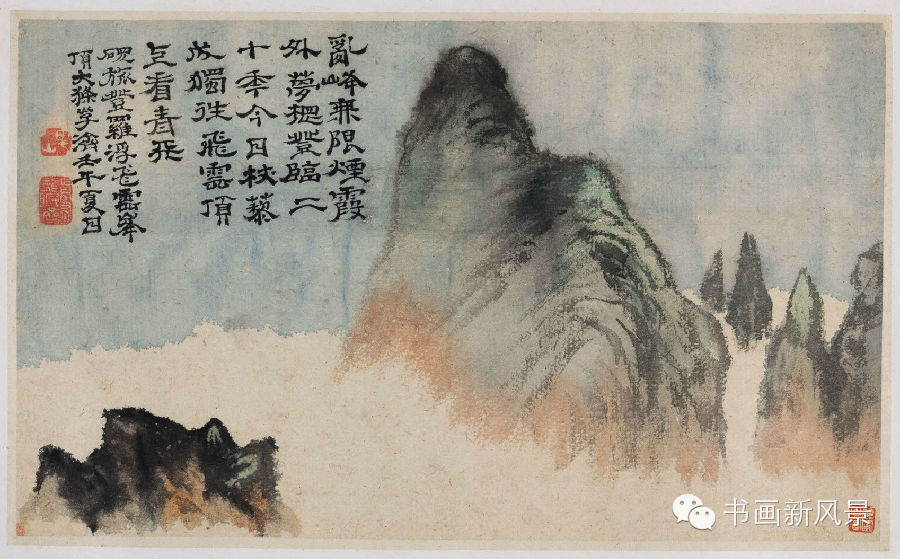 亂峰無限煙霞
外夢登臨二
十季今日杖藜
成獨往飛雲頂
上看青天
硯旅登羅浮飛雲峯
頂大滌子濟壬午夏日
书画新风景